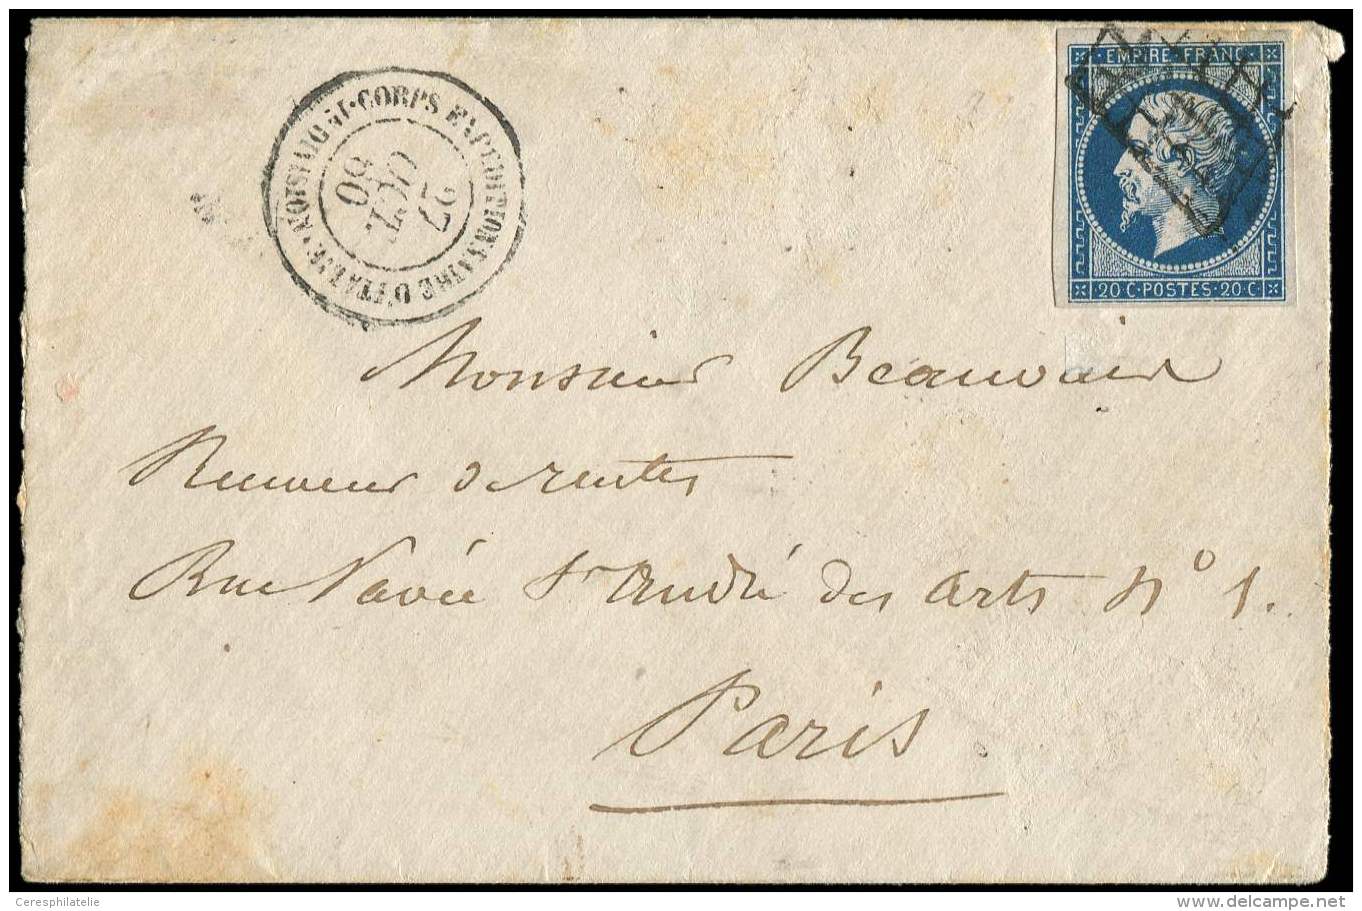 CORPS EXPEDITIONNAIRE D'ITALIE
27
OCT.
60
EMPIRE FRANC
20 C·POSTES·20 C
Monsieur Beauvais
Receveur de rentes
Rue Pavée St André des Arts N° 1.
Paris
Ceresphilatelie
www.delcampe.net